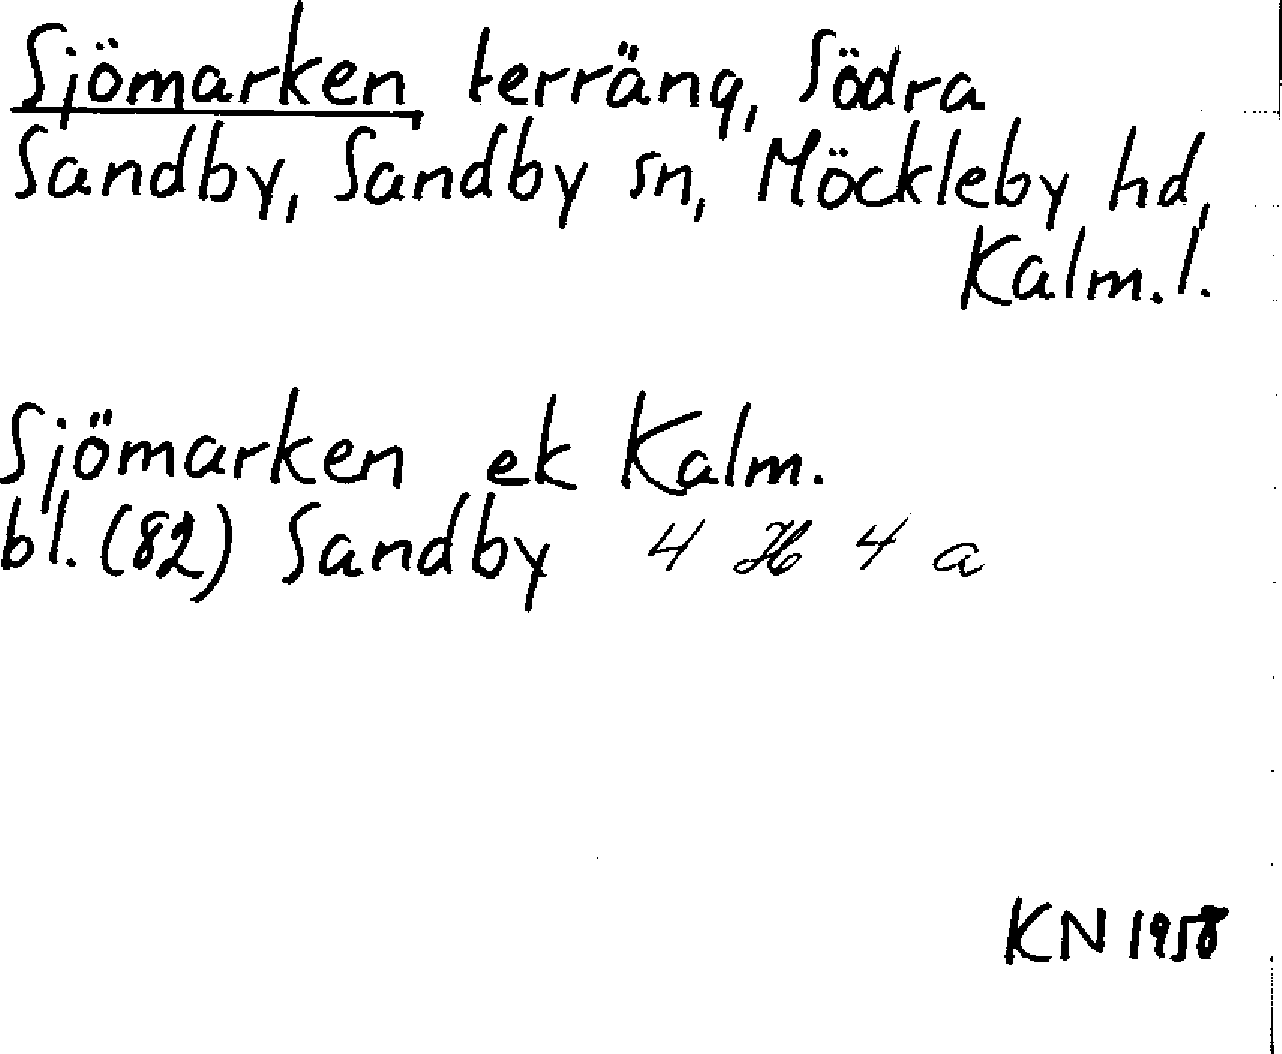 Sjömarken terräng, Södra
Sandby, Sandby sn, Möckleby hd,
Kalm. l.
Sjömarken ek Kalm.
bl. (82) Sandby 4 H 4 a
KN 1958